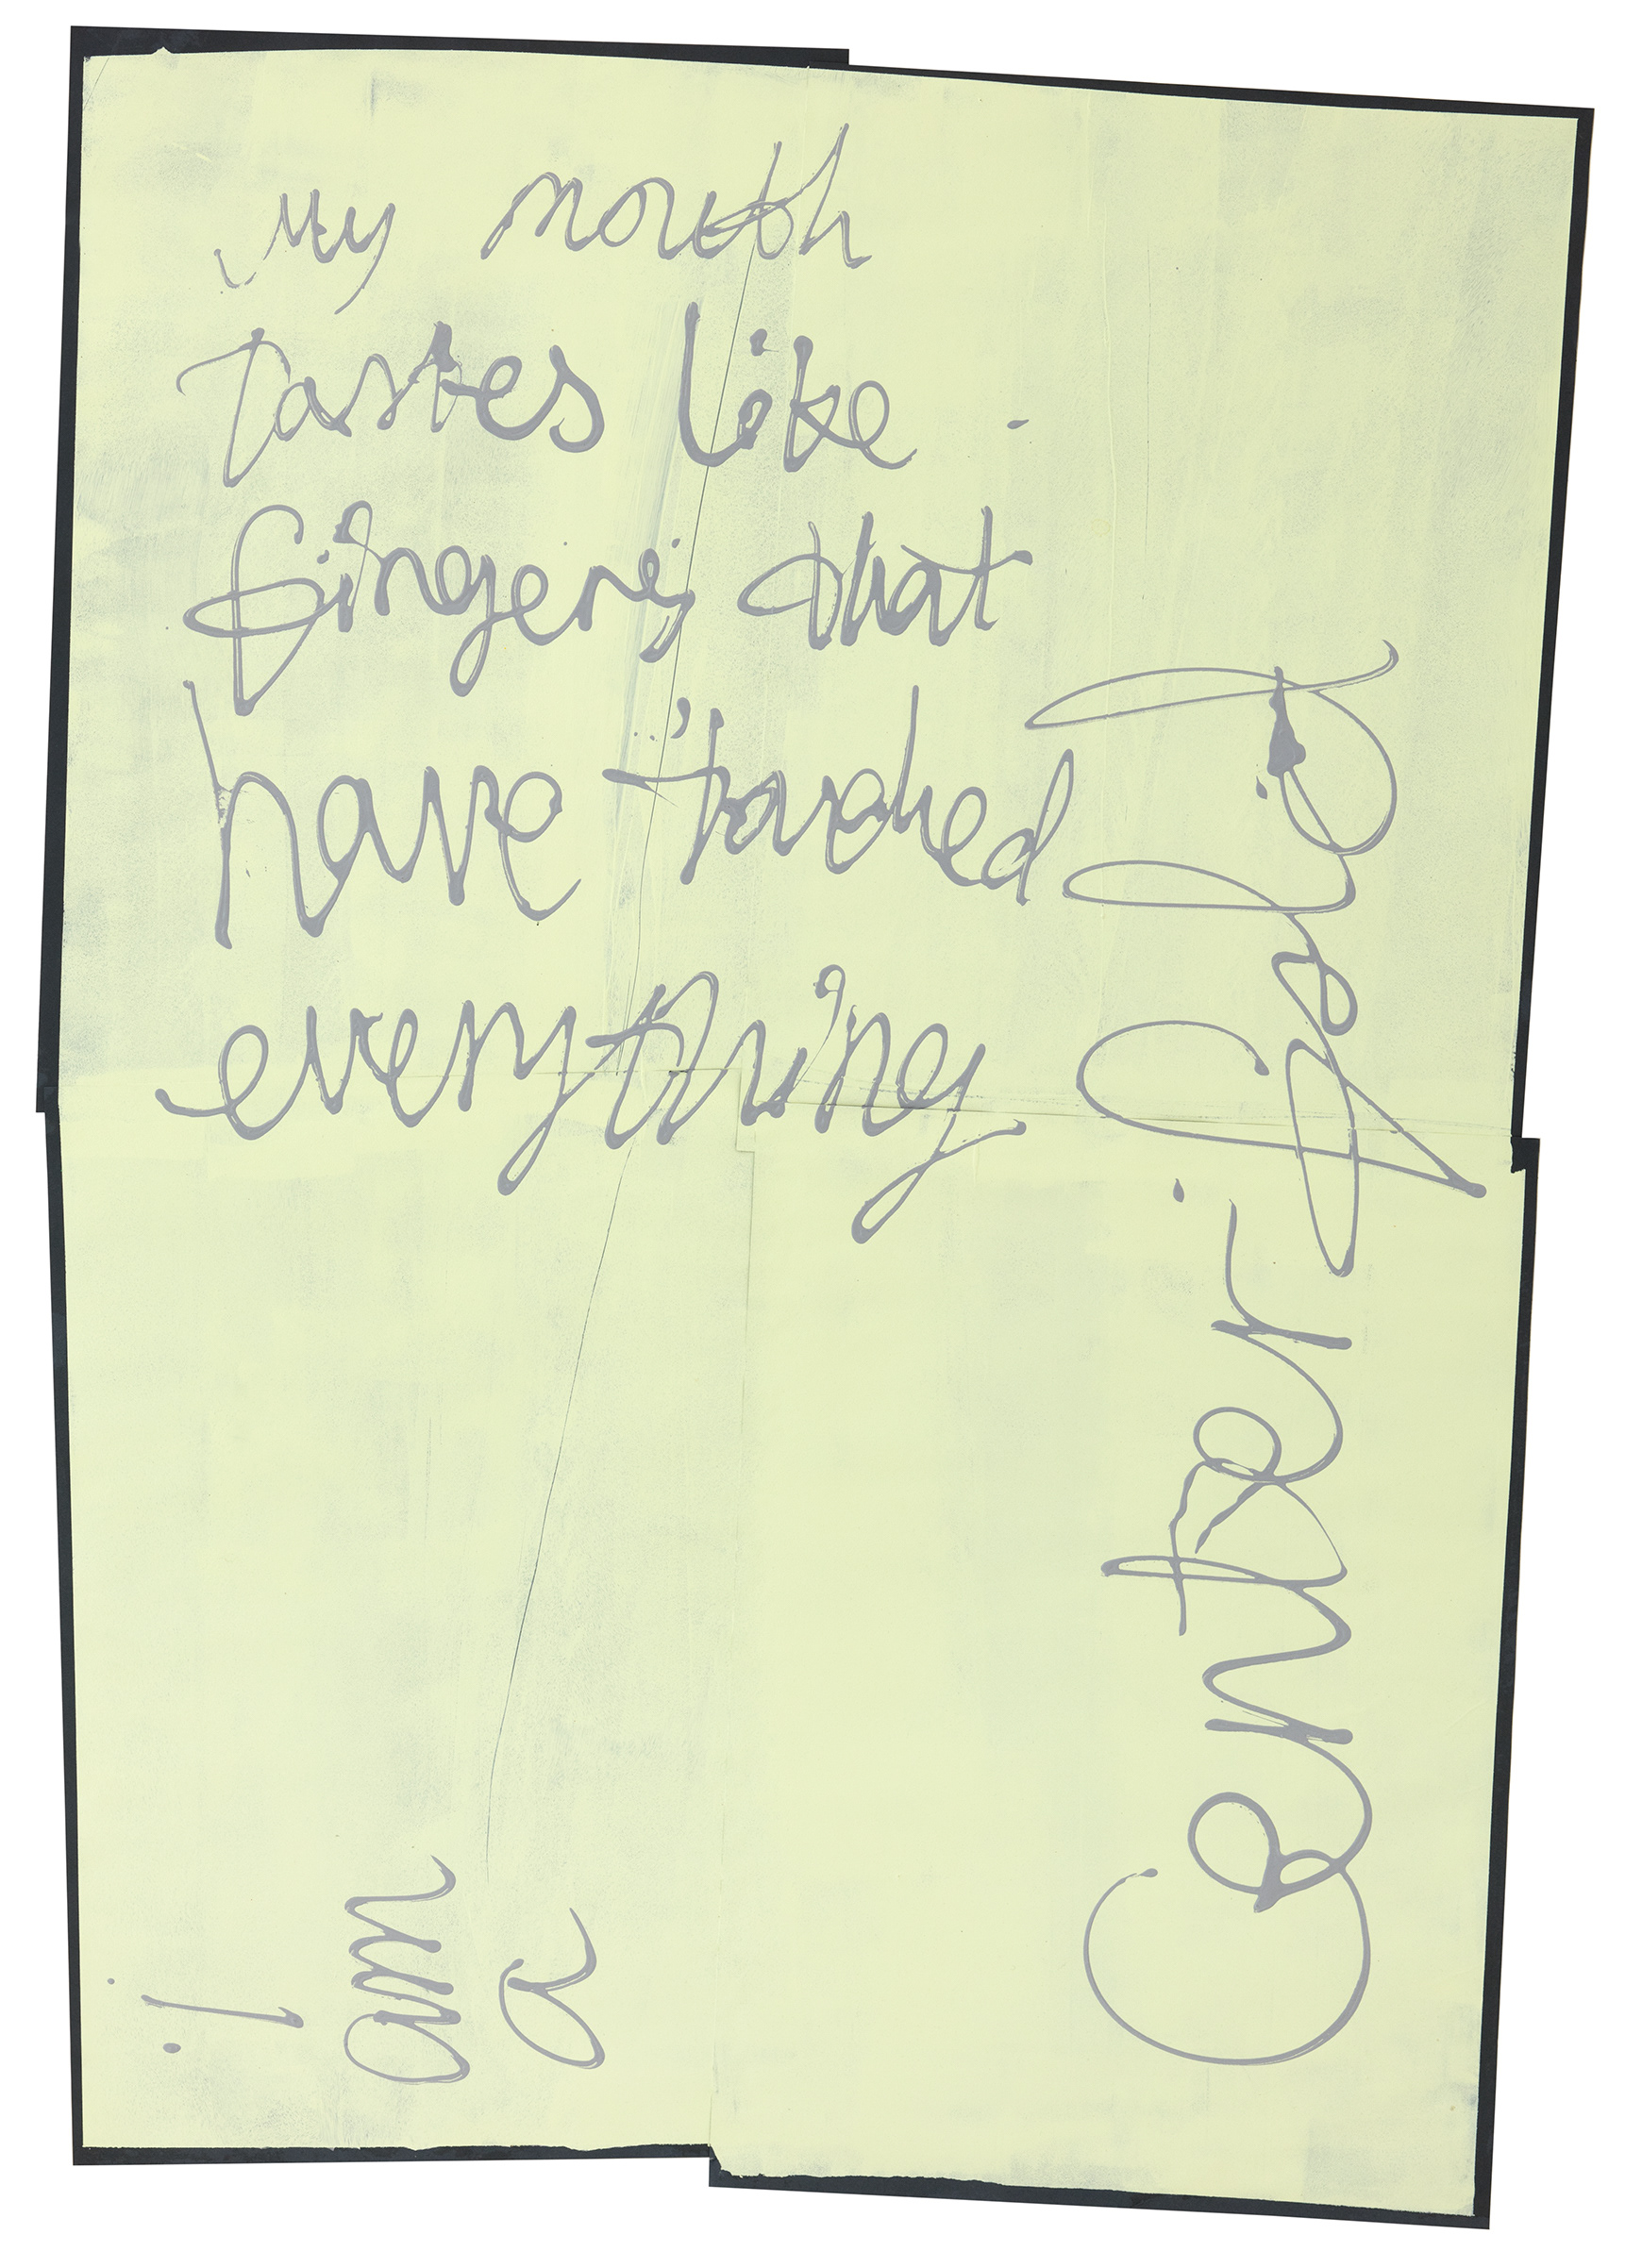 My mouth
tastes like
fingers that
have touched
everything
i
am
a
Centerfold